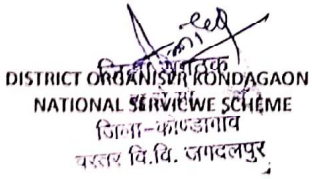 जिला संगठक
DISTRICT ORGANISER KONDAGAON
NATIONAL SERVICWE SCHEME
जिला-कोण्डागांव
बस्तर वि.वि. जगदलपुर